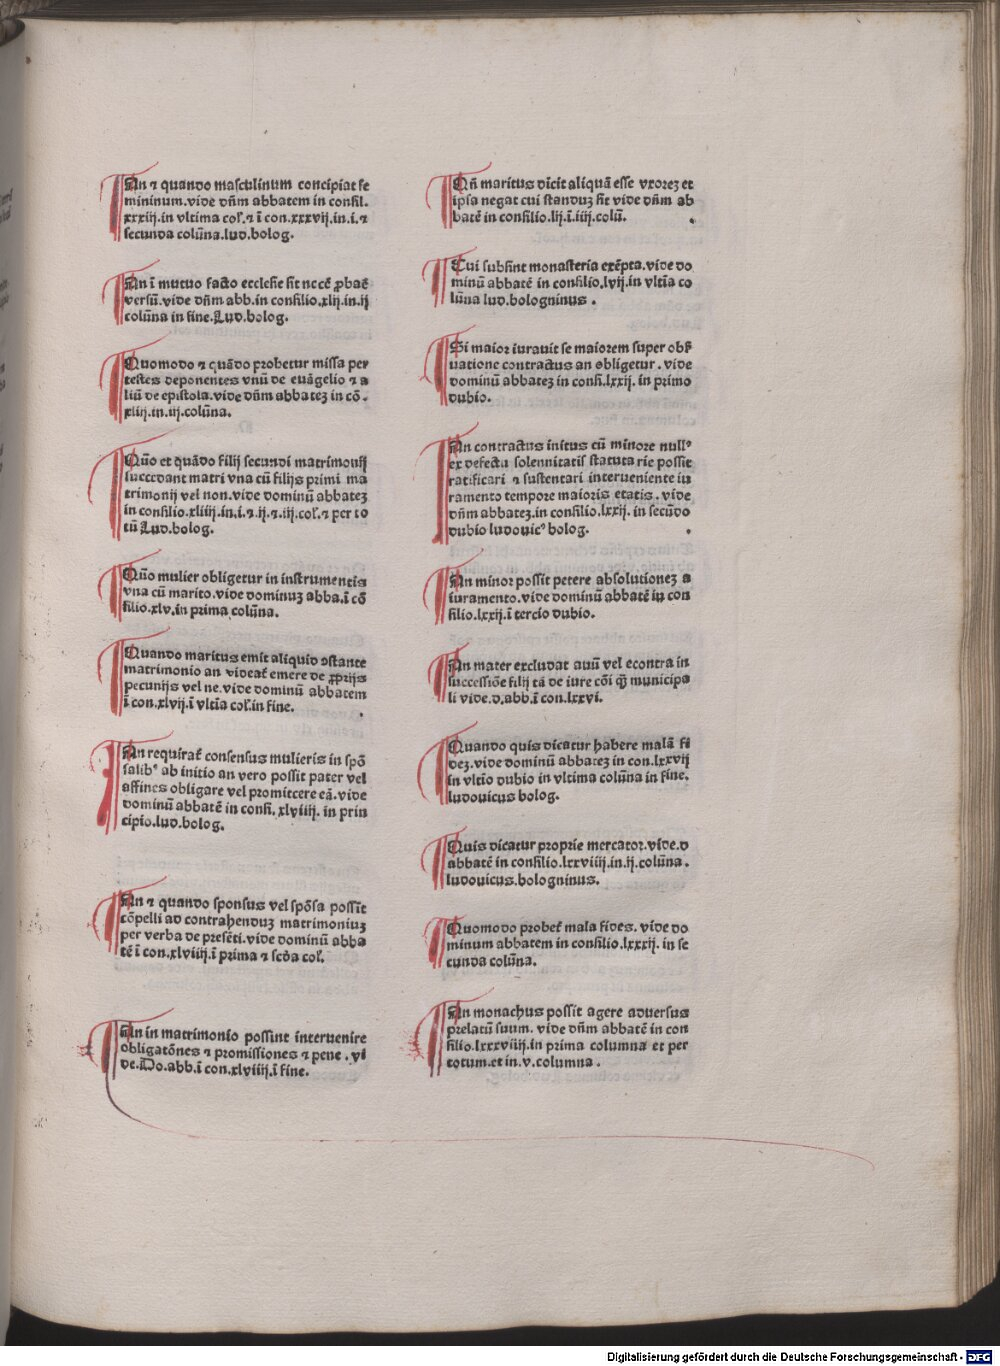 An ⁊ quando masculinum concipiat fe
mininum.vide dn̄m abbatem in consil.
xxxiij.in vltima col̛.⁊ ī con.xxxvij.in.i.⁊
secunda colūna.lud.bolog.
An ī mutuo facto ecclesie sit neccē ꝓbaē
versū.vide dn̄m abb.in consilio.xlij.in.ij
colūna in fine.Lud.bolog.
Quomodo ⁊ quādo probetur missa per
testes deponentes vnū de euāgelio ⁊ a
liū de epistola.vide dn̄m abbatez in cō.
xliij.in.iij.colūna.
Qūo et quādo filij secundi matrimonij
succedant matri vna cū filijs primi ma
trimonij vel non.vide dominū abbatez
in consilio.xliiij.in.i.⁊.ij.⁊.iij.col̛.⁊ per to
tū Lud.bolog.
Qūo mulier obligetur in instrumentis
vna cū marito.vide dominuz abba.ī cō
silio.xlv.in prima colūna.
Quando maritus emit aliquid ↄstante
matrimonio an videat̛ emere de ꝓprijs
pecunijs vel ne.vide dominū abbatem
ī con.xlvij.ī vltīa col̛.in fine.
An requirat̛ consensus mulieris in spō
salibꝰ ab initio an vero possit pater vel
affines obligare vel promittere eā.vide
dominū abbatē in consi.xlviiij.in prin
cipio.lud.bolog.
An ⁊ quando sponsus vel spōsa possit
cōpelli ad contrahenduz matrimoniuz
per verba de presēti.vide dominū abba
tē ī con.xlviiij.ī prima ⁊ scd̄a col̛.
An in matrimonio possint interuenire
obligatōnes ⁊ promissiones ⁊ pene.vi
de.Do.abb.ī con.xlviiij.ī fine.
Qn̄ maritus dicit aliquā esse vxorez et
ipsa negat cui standuz sit vide dn̄m ab
batē in consilio.lij.ī.iiij.colū.
Cui subsint monasteria exēpta.vide do
minū abbatē in consilio.lvij.in vltīa co
lūna lud.bologninus.
Si maior iurauit se maiorem super obs̛
uatione contractus an obligetur.vide
dominū abbatez in consi.lxxij.in primo
dubio.
An contractus initus cū minore nullꝰ
ex defectu solennitatis statuta rie possit
ratificari ⁊ sustentari interueniente iu
ramento tempore maioris etatis.vide
dn̄m abbatez.in consilio.lxxij.in secūdo
dubio ludouicꝰ bolog.
An minor possit petere absolutionez a
iuramento.vide dominū abbatē in con
silio.lxxij.ī tercio dubio.
An mater excludat auū vel econtra in
successiōe filij tā de iure cōi qꝫ municipa
li vide.d.abb.ī con.lxxvi.
Quando quis dicatur habere malā fi
dez.vide dominū abbatez in con.lxxvij
in vltīo dubio in vltima colūna in fine.
ludouicus bolog.
Quis dicatur proprie mercator.vide.d
abbatē in consilio.lxxviiij.in.ij.colūna.
ludouicus.bologninus.
Quomodo probet̛ mala fides.vide do
minum abbatem in consilio.lxxxij.in se
cunda colūna.
An monachus possit agere aduersus
prelatū suum.vide dn̄m abbatē in con
silio.lxxxviiij.in prima columna et per
totum.et in.v.columna.
Digitalisierung gefördert durch die Deutsche Forschungsgemeinschaft - DFG